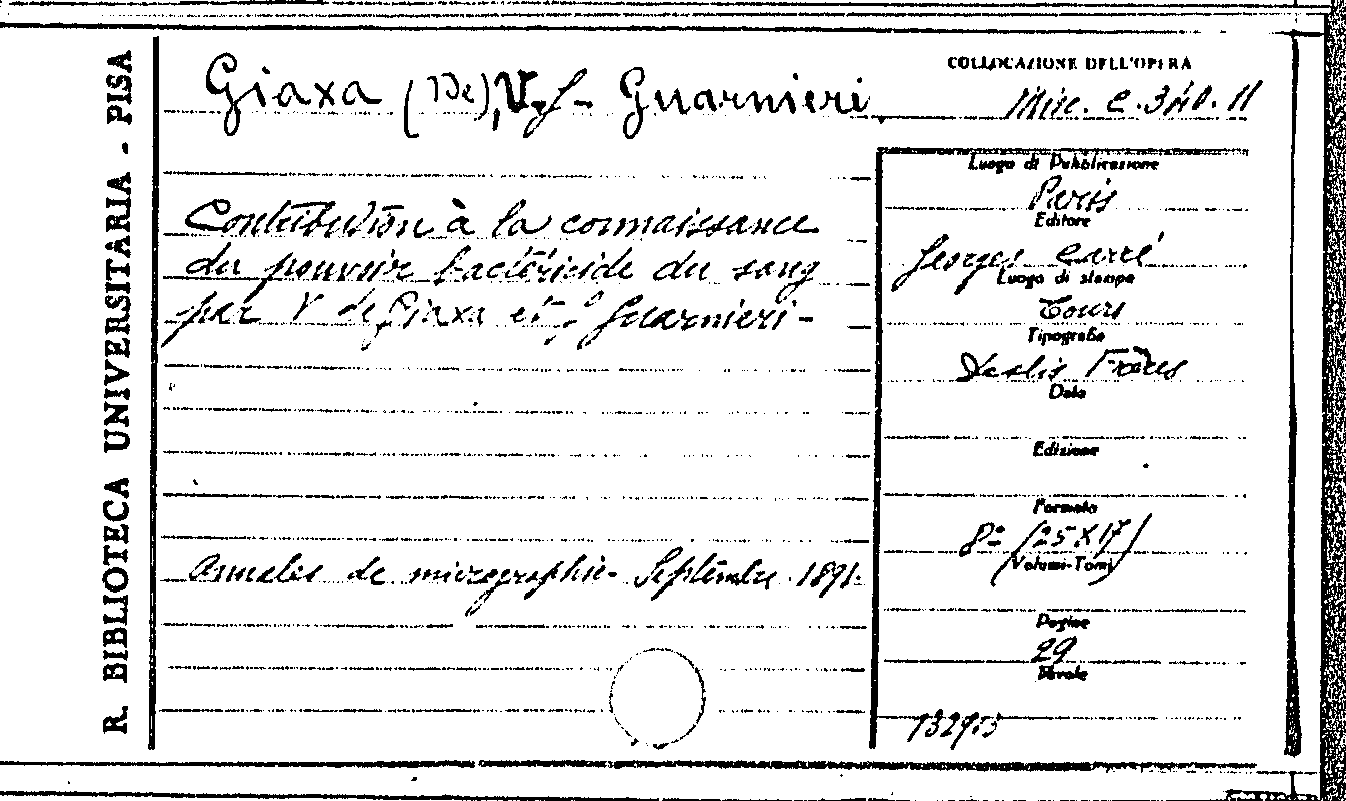 R. BIBLIOTECA UNIVERSITARIA - PISA
Giaxa (De), V. - Guarnieri
COLLOCAZIONE DELL'OPERA
Misc. C. 340. 11
Contribution à la connaissance
du pouvoir bactéricide du sang
par V de Giaxa et G Guarnieri -
Annales de micrographie - Septembre 1891.
Luogo di Pubblicazione
Paris
Editore
Georges Carré
Luogo di stampa
Tours
Tipografia
Deslis Frères
Data
Edizione
Formato
8º (25 X 17)
Volumi-Tomi
Pagine
29
Tavole